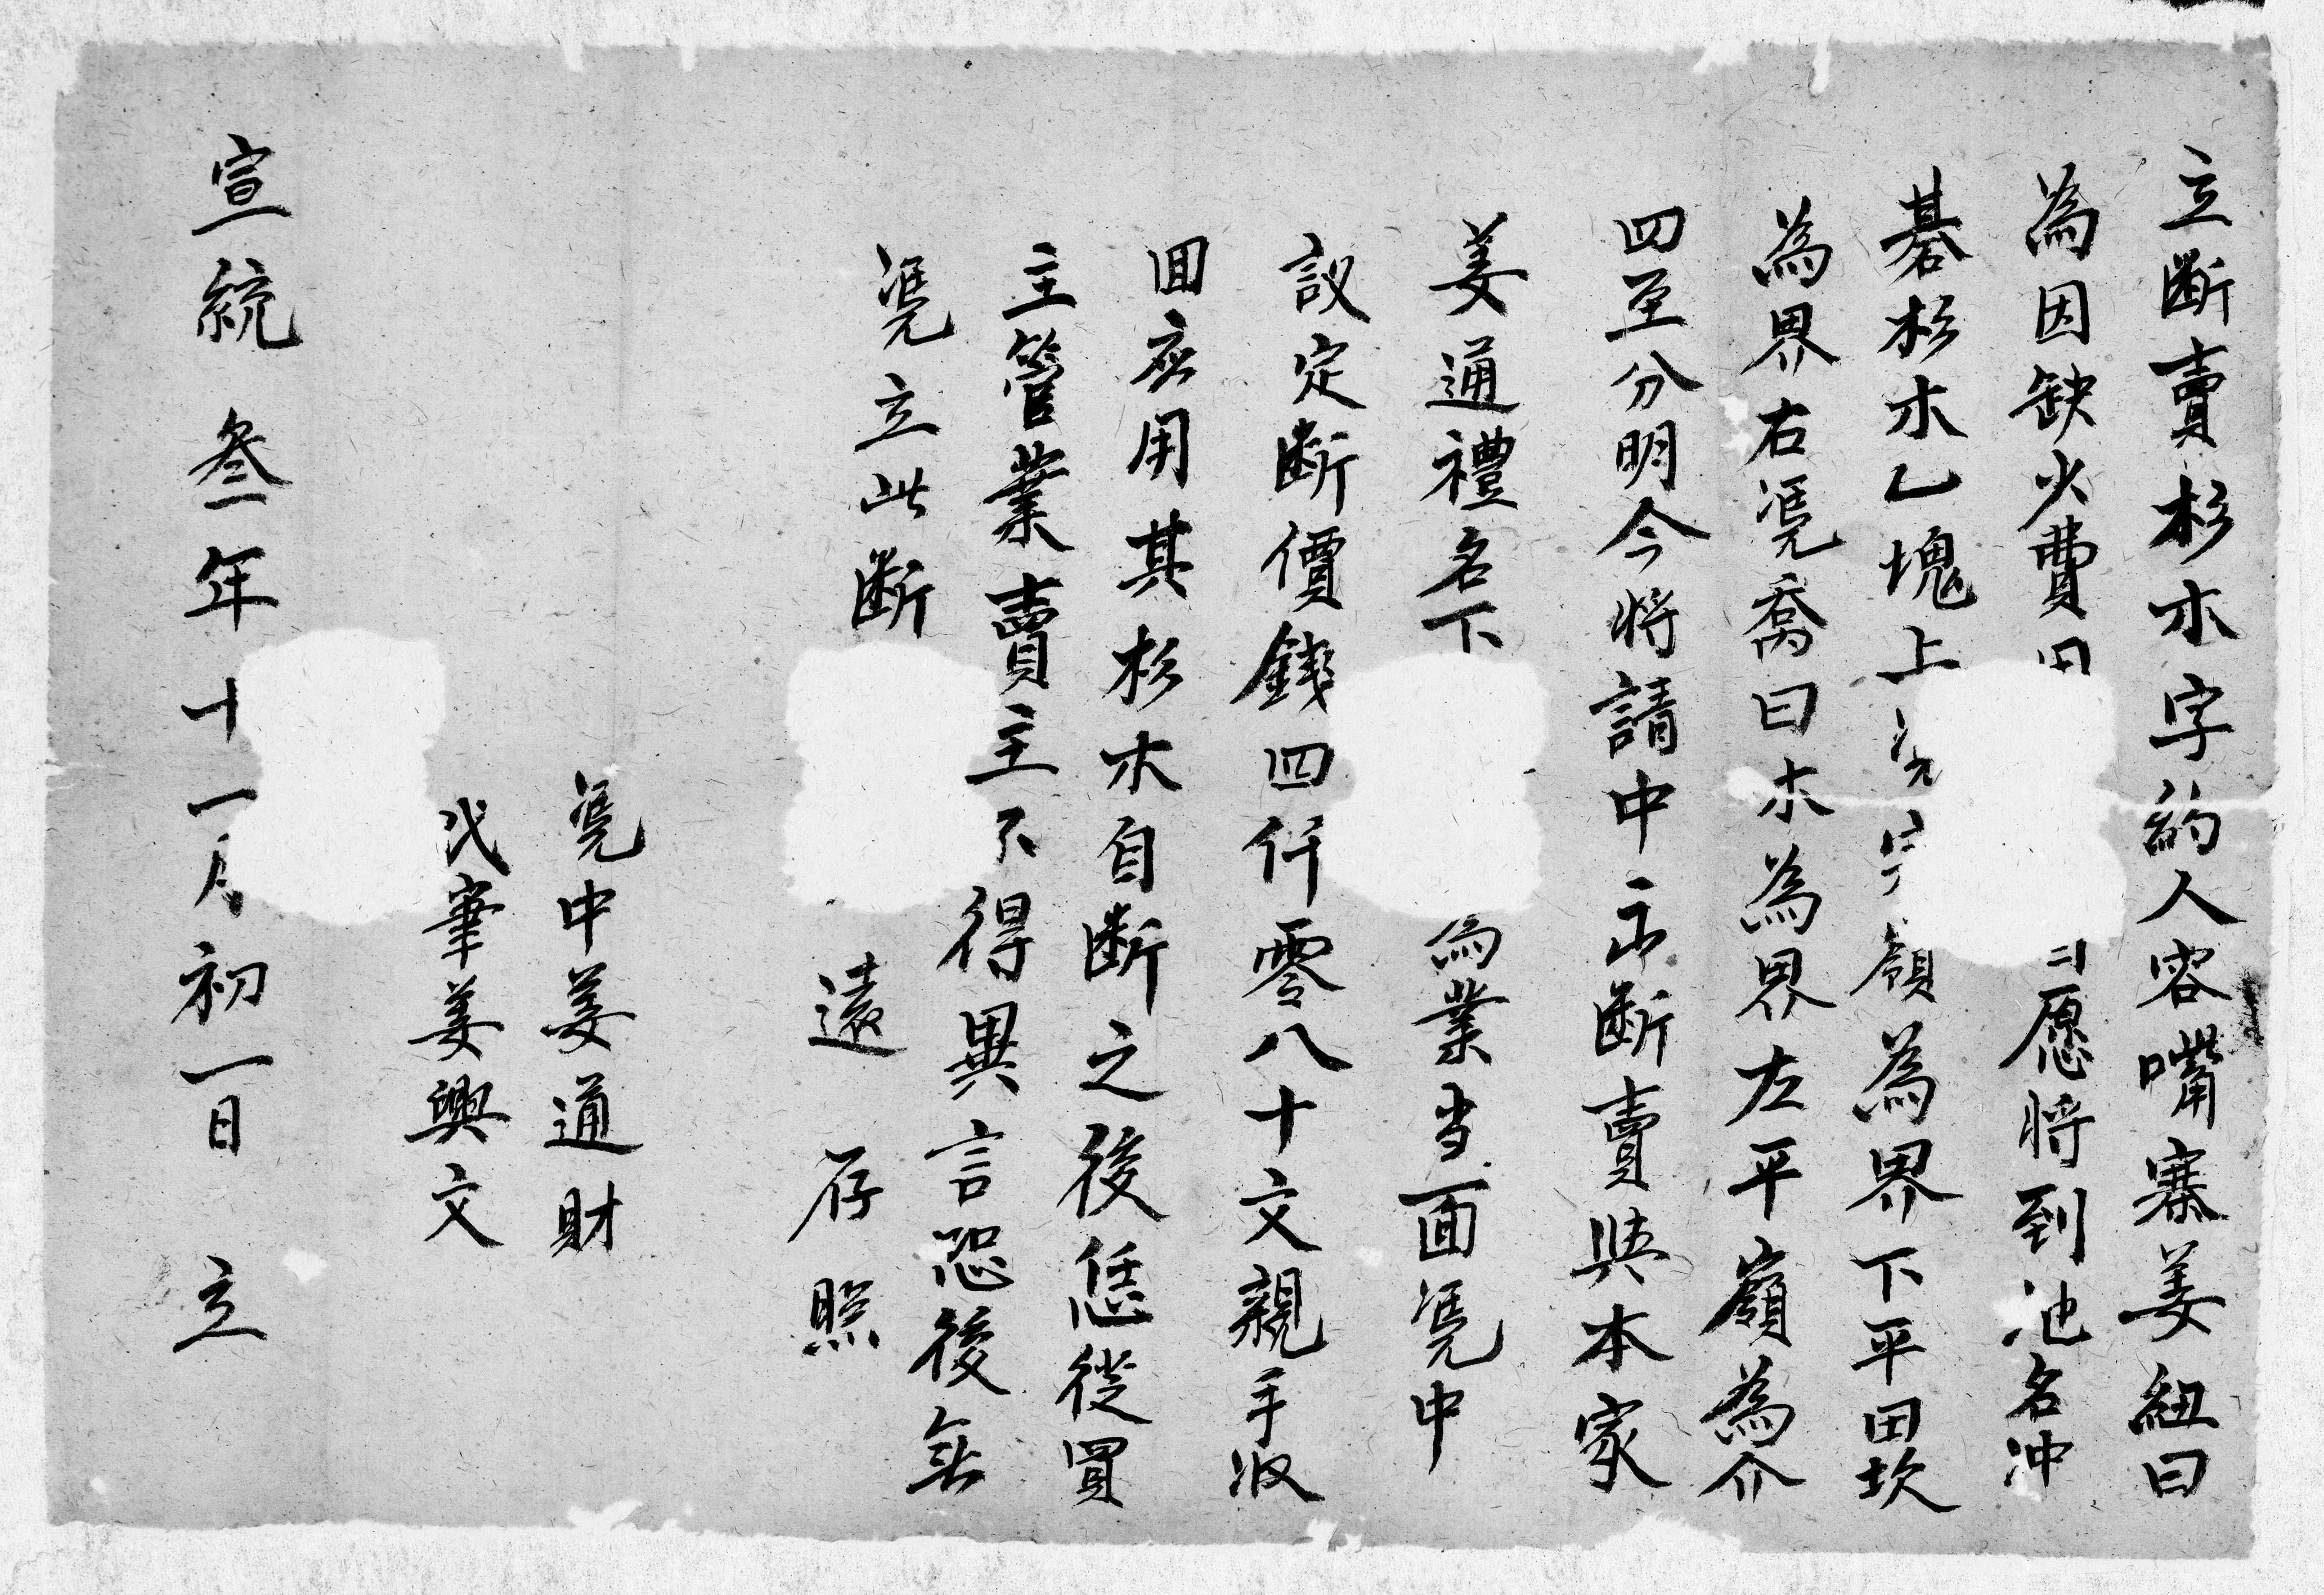 立断賣杉木字約人容嘴寨姜紐曰
為因缺火費用愿将到池名冲
碁杉木乙塊上嶺為界下平田坎
為界右凴喬曰木為界左平嶺為介
四至分明今将請中出断賣與本家
姜通禮名下為業当面凴中
議定断價錢四仟零八十文親手收
囬應用其杉木自断之後恁從買
主管業賣主不得異言恐後無
凴立此断遠存照
凴中姜通財
代筆姜興文
宣統叁年十一月初一日立